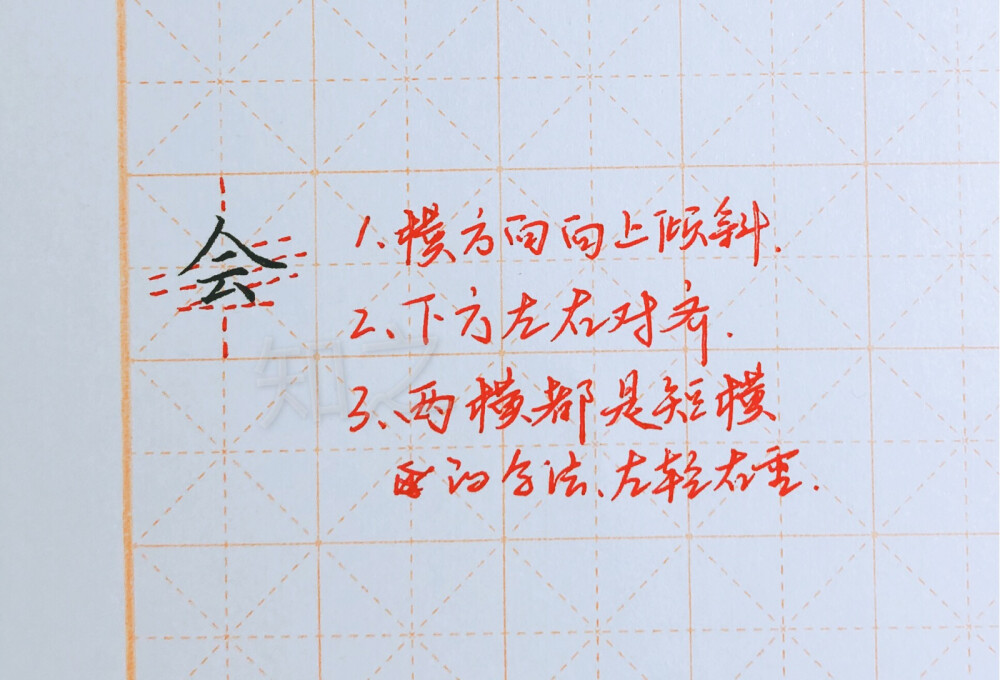 会
1、横方向向上倾斜.
2、下方左右对齐.
3、两横都是短横
的写法、左轻右重.
知之